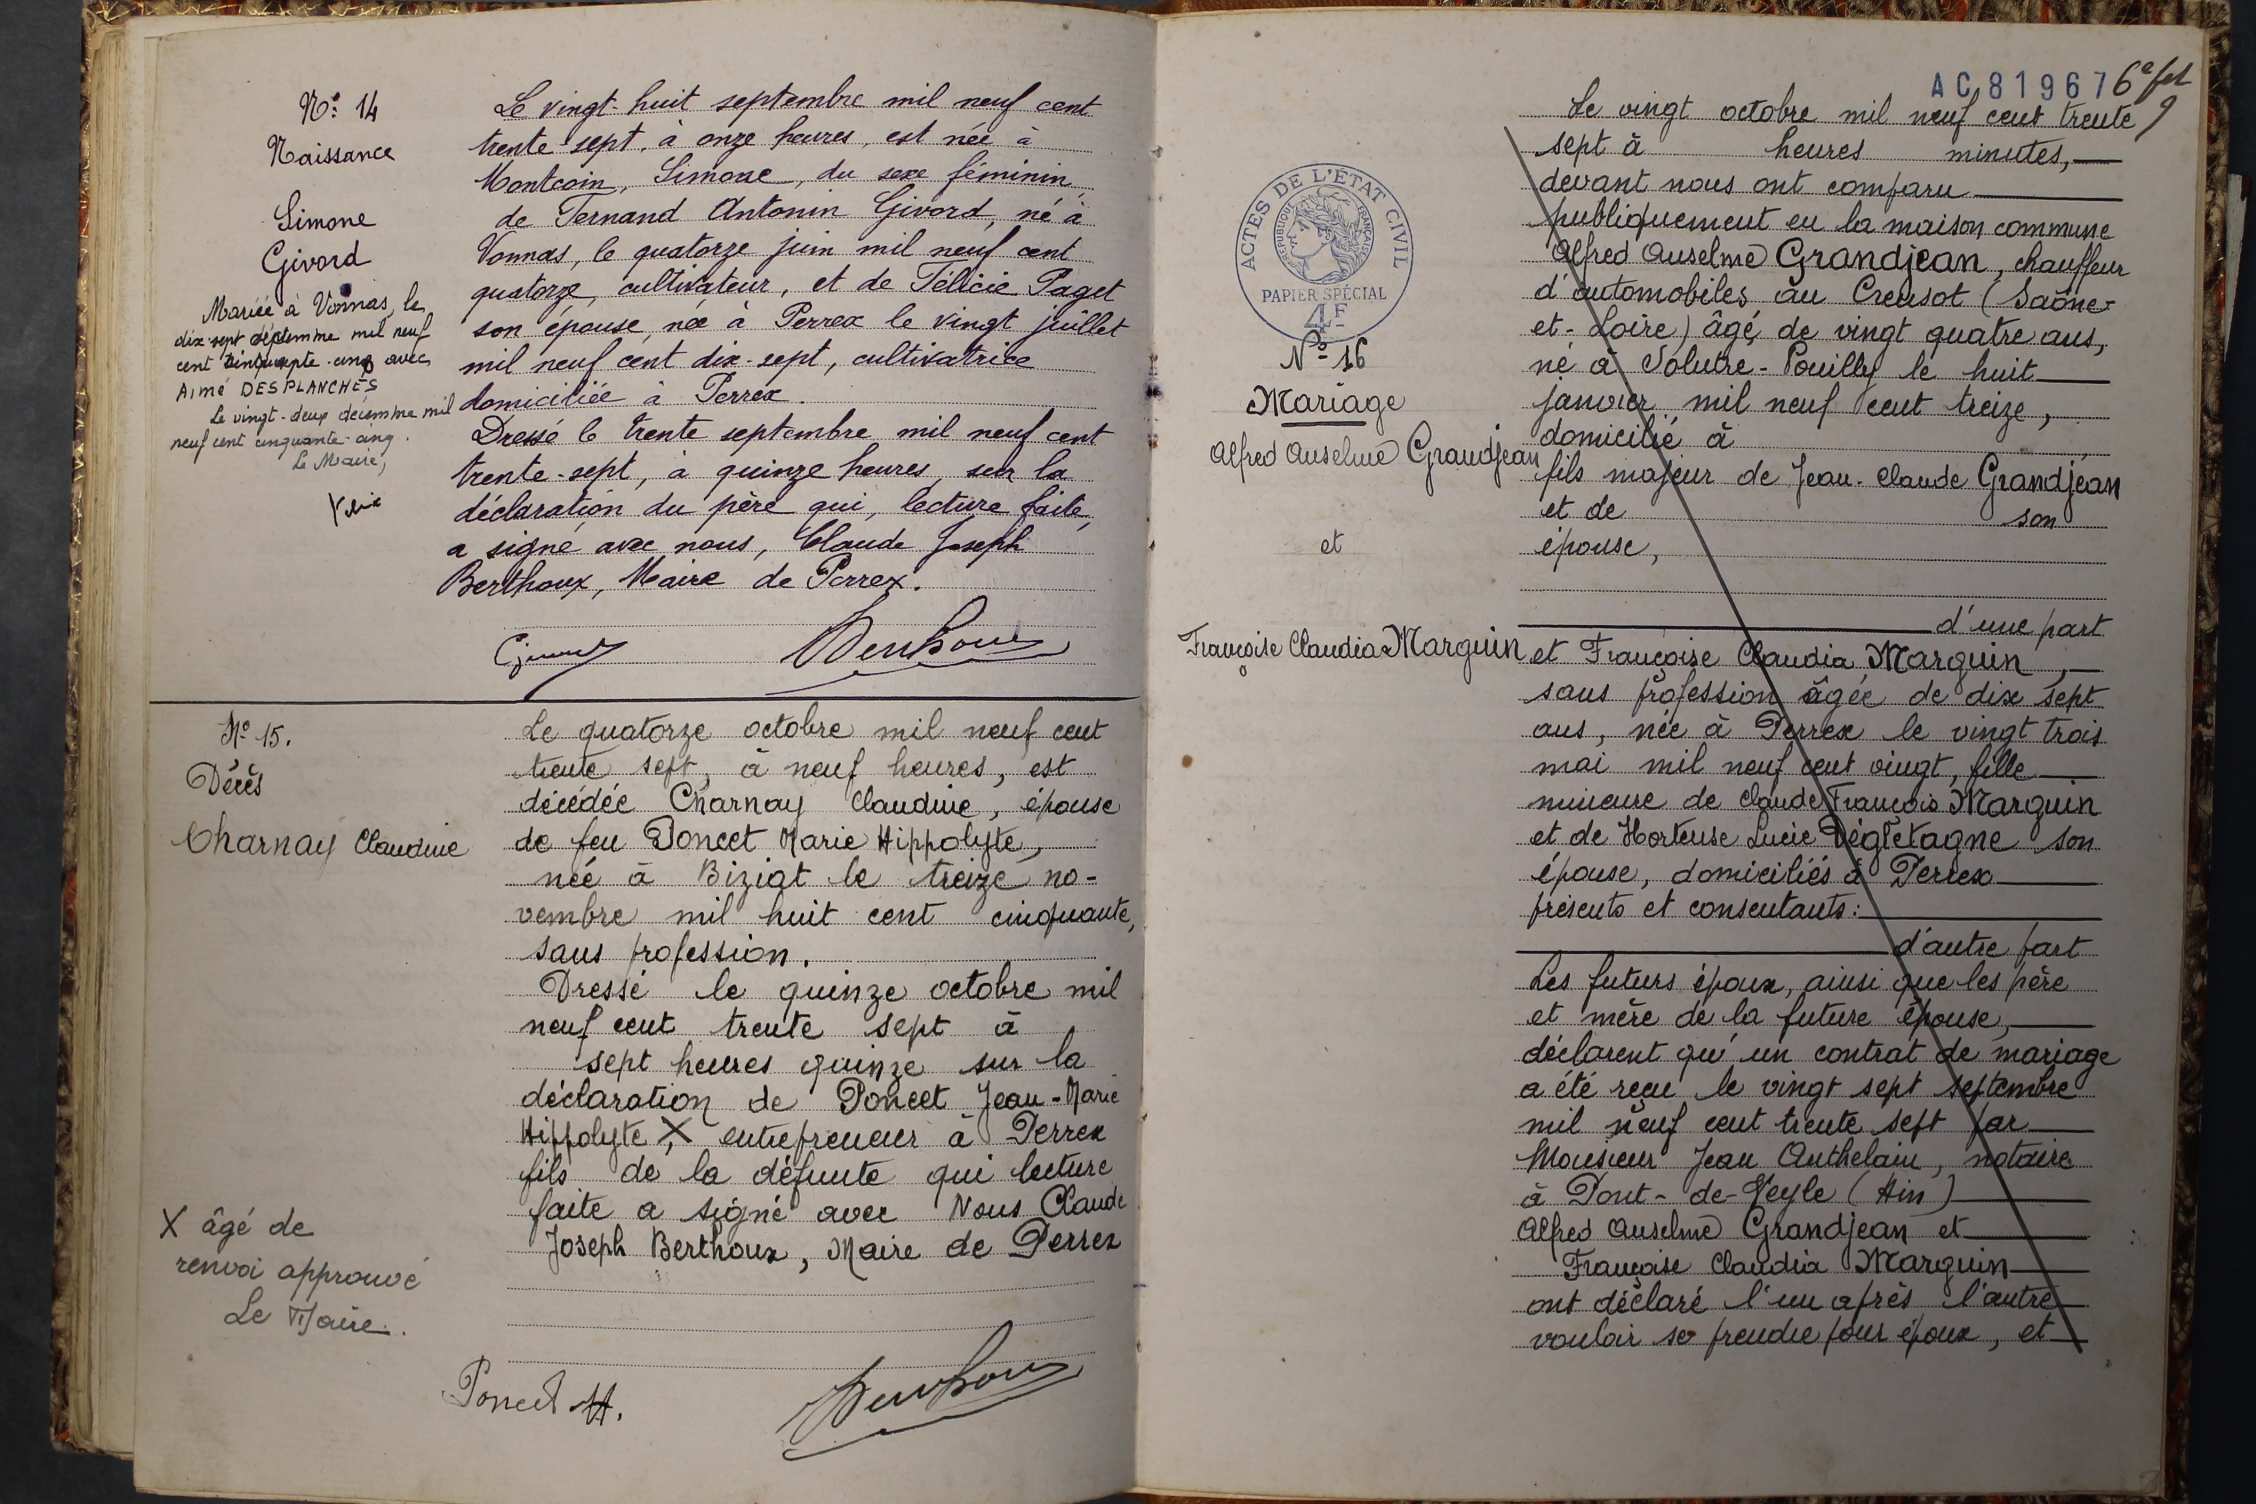 N° 14
Naissance
Simone
Givord
Mariée à Vonnas, le
dix-sept décembre mil neuf
cent cinquante-cinq avec
Aimé DESPLANCHES
Le vingt-deux décembre mil
neuf cent cinquante-cinq.
Le Maire,
Le vingt-huit septembre mil neuf cent
trente sept, à onze heures, est née à
Montcoin, Simone, du sexe féminin
de Fernand Antonin Givord, né à
Vonnas, le quatorze juin mil neuf cent
quatorze, cultivateur, et de Félicie Paget
son épouse, née à Perrex le vingt juillet
mil neuf cent dix-sept, cultivatrice
domiciliée à Perrex.
Dressé le trente septembre mil neuf cent
trente-sept, à quinze heures, sur la
déclaration du père qui, lecture faite,
a signé avec nous, Claude Joseph
Berthoux, Maire de Perrex.
Berthoux
N° 15.
Décès
Charnay Claudine
Le quatorze octobre mil neuf cent
trente sept, à neuf heures, est
décédée Charnay Claudine, épouse
de feu Poncet Marie Hippolyte,
née à Biziat le treize no-
vembre mil huit cent cinquante,
sans profession.
Dressé le quinze octobre mil
neuf cent trente sept à
sept heures quinze sur la
déclaration de Poncet Jean-Marie
Hippolyte, X entrepreneur à Perrex
fils de la défunte qui lecture
faite a signé avec Nous Claude
Joseph Berthoux, Maire de Perrex
X âgé de
renvoi approuvé
Le Maire.
Poncet H.
Berthoux
AC 819676
6e fet
9
ACTES DE L'ÉTAT CIVIL
RÉPUBLIQUE FRANÇAISE
PAPIER SPÉCIAL
4F
N° 16
Mariage
Alfred Anselme Grandjean
et
Françoise Claudia Marguin
Le vingt octobre mil neuf cent trente
sept à heures minutes,
devant nous ont comparu
publiquement en la maison commune
Alfred Anselme Grandjean, chauffeur
d'automobiles au Creusot (Saône-
et-Loire) âgé de vingt quatre ans,
né à Solutré-Pouilly le huit
janvier mil neuf cent treize,
domicilié à
fils majeur de Jean-Claude Grandjean
et de son
épouse,
d'une part
et Françoise Claudia Marguin,
sans profession âgée de dix sept
ans, née à Perrex le vingt trois
mai mil neuf cent vingt, fille
mineure de Claude François Marguin
et de Hortense Lucie Dégletagne son
épouse, domiciliés à Perrex
présents et consentants:
d'autre part
Les futurs époux, ainsi que les père
et mère de la future épouse,
déclarent qu'un contrat de mariage
a été reçu le vingt sept septembre
mil neuf cent trente sept par
Monsieur Jean Anthelain, notaire
à Pont-de-Veyle (Ain)
Alfred Anselme Grandjean et
Françoise Claudia Marguin
ont déclaré l'un après l'autre
vouloir se prendre pour époux, et